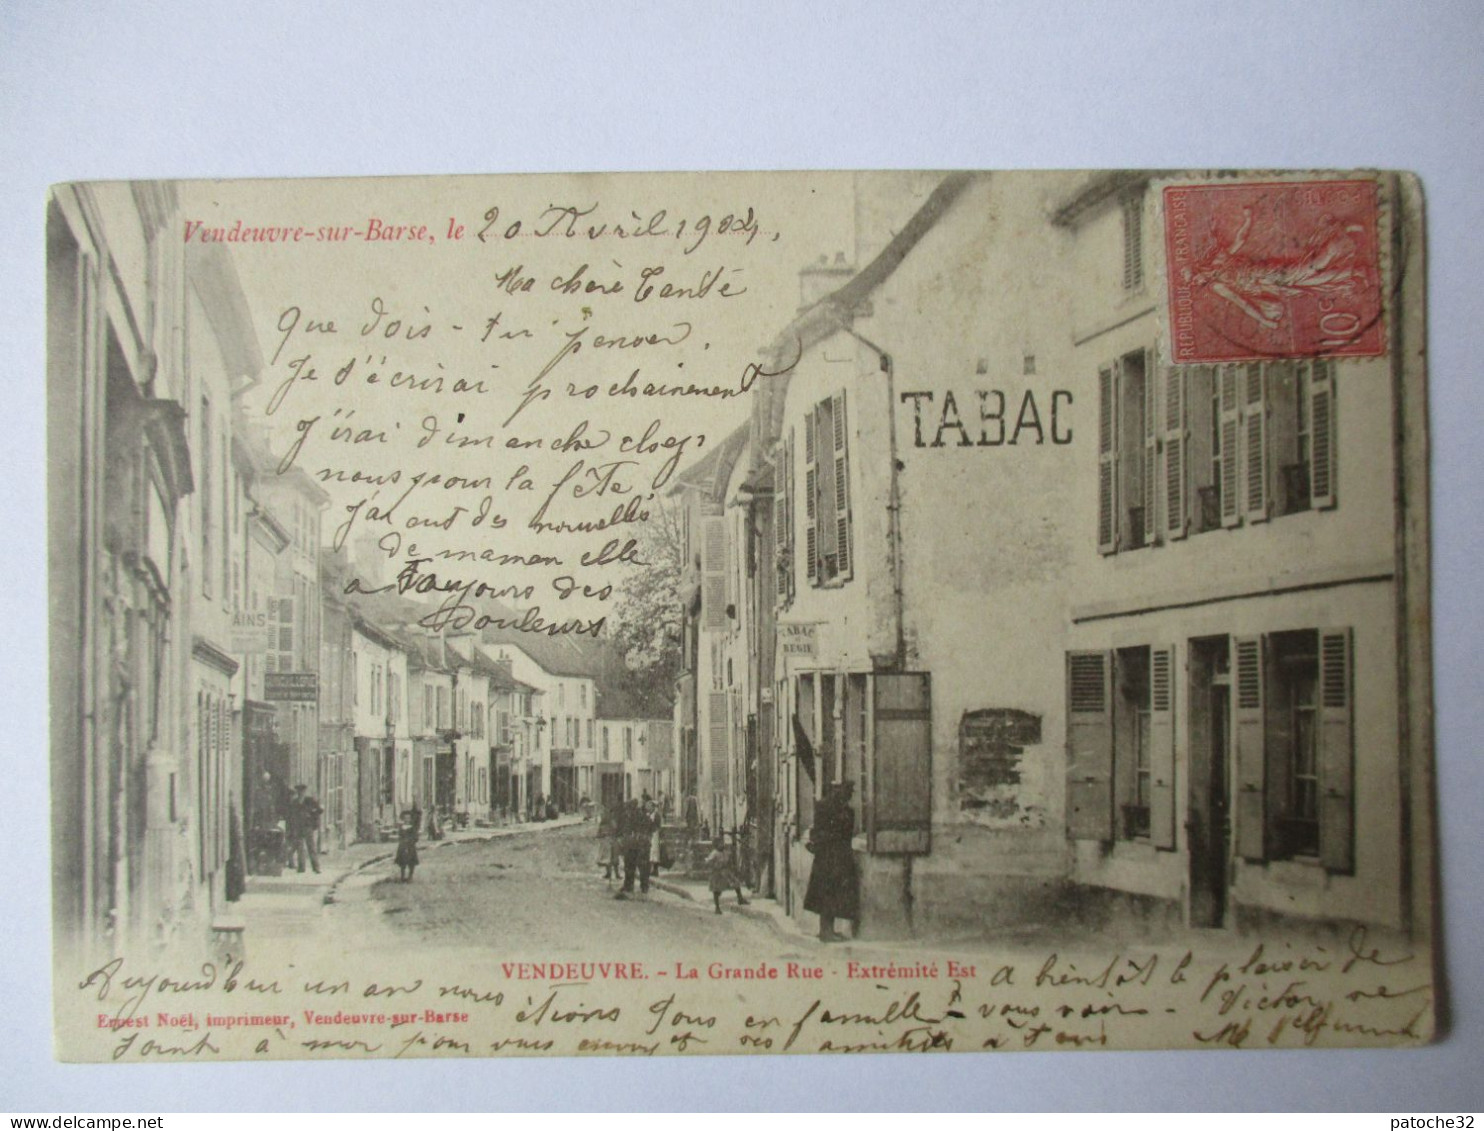 Vendeuvre-sur-Barse, le 20 Avril 1904,
RÉPUBLIQUE FRANÇAISE
10c
Ma chère Tante
Que dois-tu penser.
Je t'écrirai prochainement
J'irai dimanche chez
nous pour la fête
j'ai eut des nouvelles
de maman elle
a toujours des
Douleurs
TABAC
TABAC
REGIE
AINS
QUINCAILLERIE
VENDEUVRE. - La Grande Rue - Extrémité Est
Aujourd'hui un an nous étions tous en famille
A bientôt le plaisir de
vous voir - Victor se
Ernest Noël, imprimeur, Vendeuvre-sur-Barse
joint à moi pour vous envoyer ses amitiés à tous
patoche32